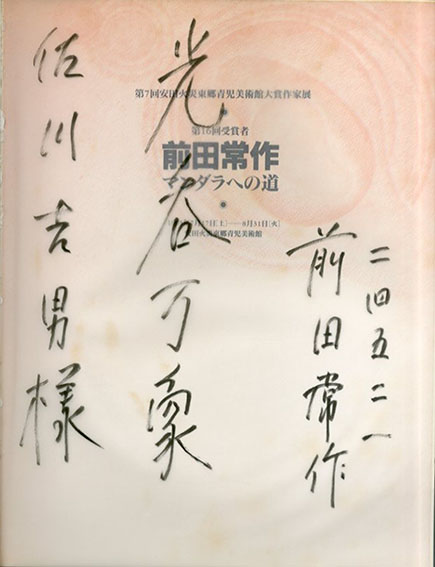 第7回安田火災東郷青児美術館大賞作家展
第16回受賞者
前田常作
マンダラへの道
7月17日[土]――8月31日[火]
安田火災東郷青児美術館
佐川吉男様
光 万象
前田常作
二四五二一